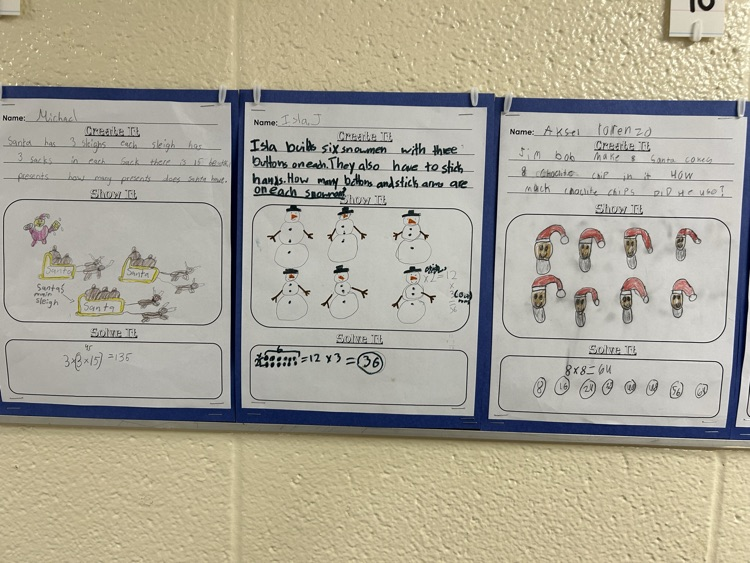 10
Name: Michael
Create It
Santa has 3 sleighs each sleigh has
3 sacks in each sack there is 15
presents how many presents does santa have.
Show It
Santa
Santa
Santa's
main
sleigh
Santa
Solve It
45
3×(3×15)=135
Name: Isla J
Create It
Isla builds six snowmen with three
buttons on each. They also have to stick
hands. How many buttons and stick arms are
on each snowmen?
Show It
×2=12
36
Solve It
6
=12 × 3 = 36
Name: Aksel lorenzo
Create It
Jim bob make 8 Santa cones
8 choclite chip in it How
much choclite chips DiD He use?
Show It
Solve It
8×8=64
8 16 24 32 40 48 56 64